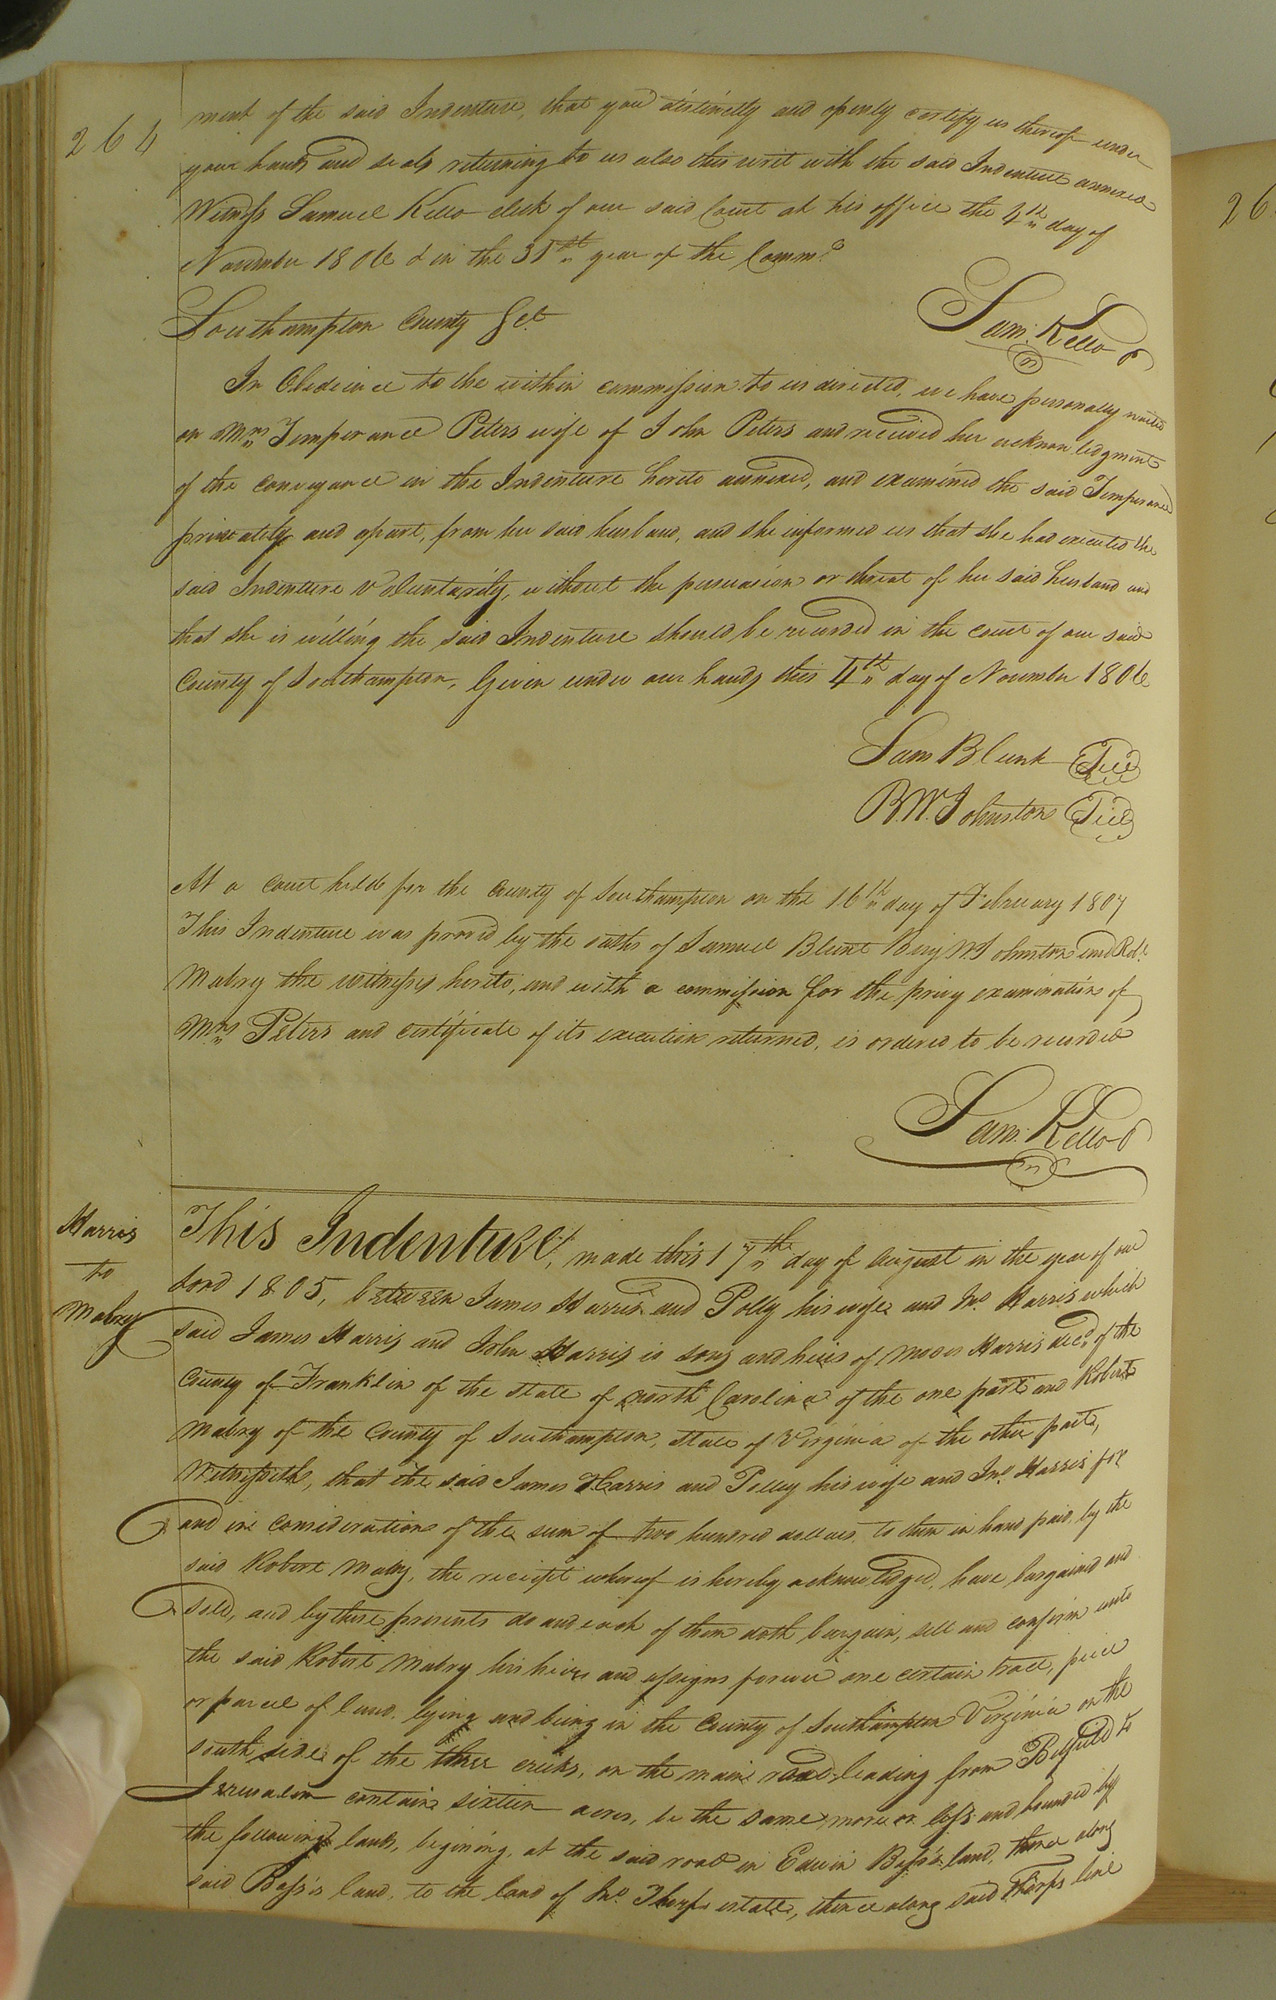 264
ment of the said Indenture, that you distinctly and openly certify us thereof under
your hands and seals returning to us also this writ with the said Indenture annexed
Witness Samuel Kello clerk of our said Court at his office the 4th day of
November 1806 & in the 31st year of the Commo
Sam: Kello
Southampton County Sct
In Obedience to the within commission to us directed, we have personally waited
on Mrs Temperance Peters wife of John Peters and received her acknowledgment
of the conveyance in the Indenture hereto annexed, and examined the said Temperance
privately and apart, from her said husband, and she informed us that she had executed the
said Indenture voluntarily, without the persuasion or threat of her said husband and
that she is willing the said Indenture should be recorded in the court of our said
County of Southampton, Given under our hands this 4th day of November 1806
Sam Blunt Seal
B. W. Johnston Seal
At a Court held for the County of Southampton on the 16th day of February 1807
This Indenture was proved by the oaths of Samuel Blunt Benj W Johnston and Robt
Mabry the witnesses hereto, and with a commission for the privy examination of
Mrs Peters and certificate of its execution returned, is ordered to be recorded
Sam: Kello
Harris
to
Mabry
This Indenture, made this 17th day of August in the year of our
Lord 1805, between James Harris and Polly his wife and Jno Harris which
said James Harris and John Harris is sons and heirs of Moses Harris decd. of the
County of Franklin of the state of north Carolina of the one part and Robert
Mabry of the County of Southampton, state of Virginia of the other part,
Witnesseth, that the said James Harris and Polley his wife and Jno Harris for
and in consideration of the sum of two hundred dollars to them in hand paid, by the
said Robert Mabry, the receipt whereof is hereby acknowledged, have bargained and
sold, and by these presents do and each of them doth bargain, sell and confirm unto
the said Robert Mabry his heirs and assigns forever one certain tract, piece
or parcel of land, lying and being in the County of Southampton Virginia on the
south side of the three creeks, on the main road leading from Belfield to
Jerusalem contain sixteen acres, be the same more or less and bounded by
the following lands, begining, at the said road in Edwin Bass's land, thence along
said Bass's land, to the land of Jno Thorps estate, thence along said Thorps line
26